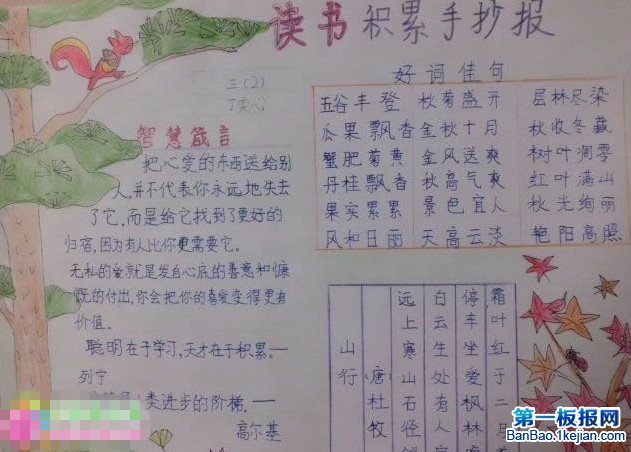 读书积累手抄报
三(2)
丁奕心
智慧箴言
把心爱的东西送给别
人,并不代表你永远地失去
了它,而是给它找到了更好的
归宿,因为有人比你更需要它。
无私的爱就是发自心底的善意和慷
慨的付出,你会把你的喜爱变得更有
价值。
聪明在于学习,天才在于积累。—
列宁
类进步的阶梯。—
高尔基
好词佳句
五谷丰登 秋菊盛开 层林尽染
瓜果飘香 金秋十月 秋收冬藏
蟹肥菊黄 金风送爽 树叶凋零
丹桂飘香 秋高气爽 红叶满山
果实累累 景色宜人 秋光绚丽
风和日丽 天高云淡 艳阳高照
山行
唐杜牧
远上寒山石径
白云生处有人
停车坐爱枫林
霜叶红于二月
第一板报网
BanBao.1kejian.com